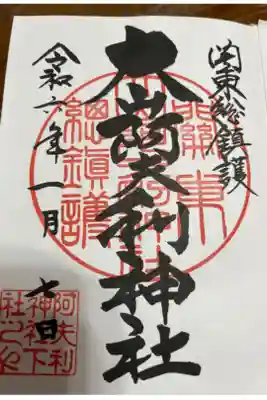 関東総鎮護
大山阿夫利神社
令和六年一月七日
關東
總鎮護
阿夫利
神社下
社之印